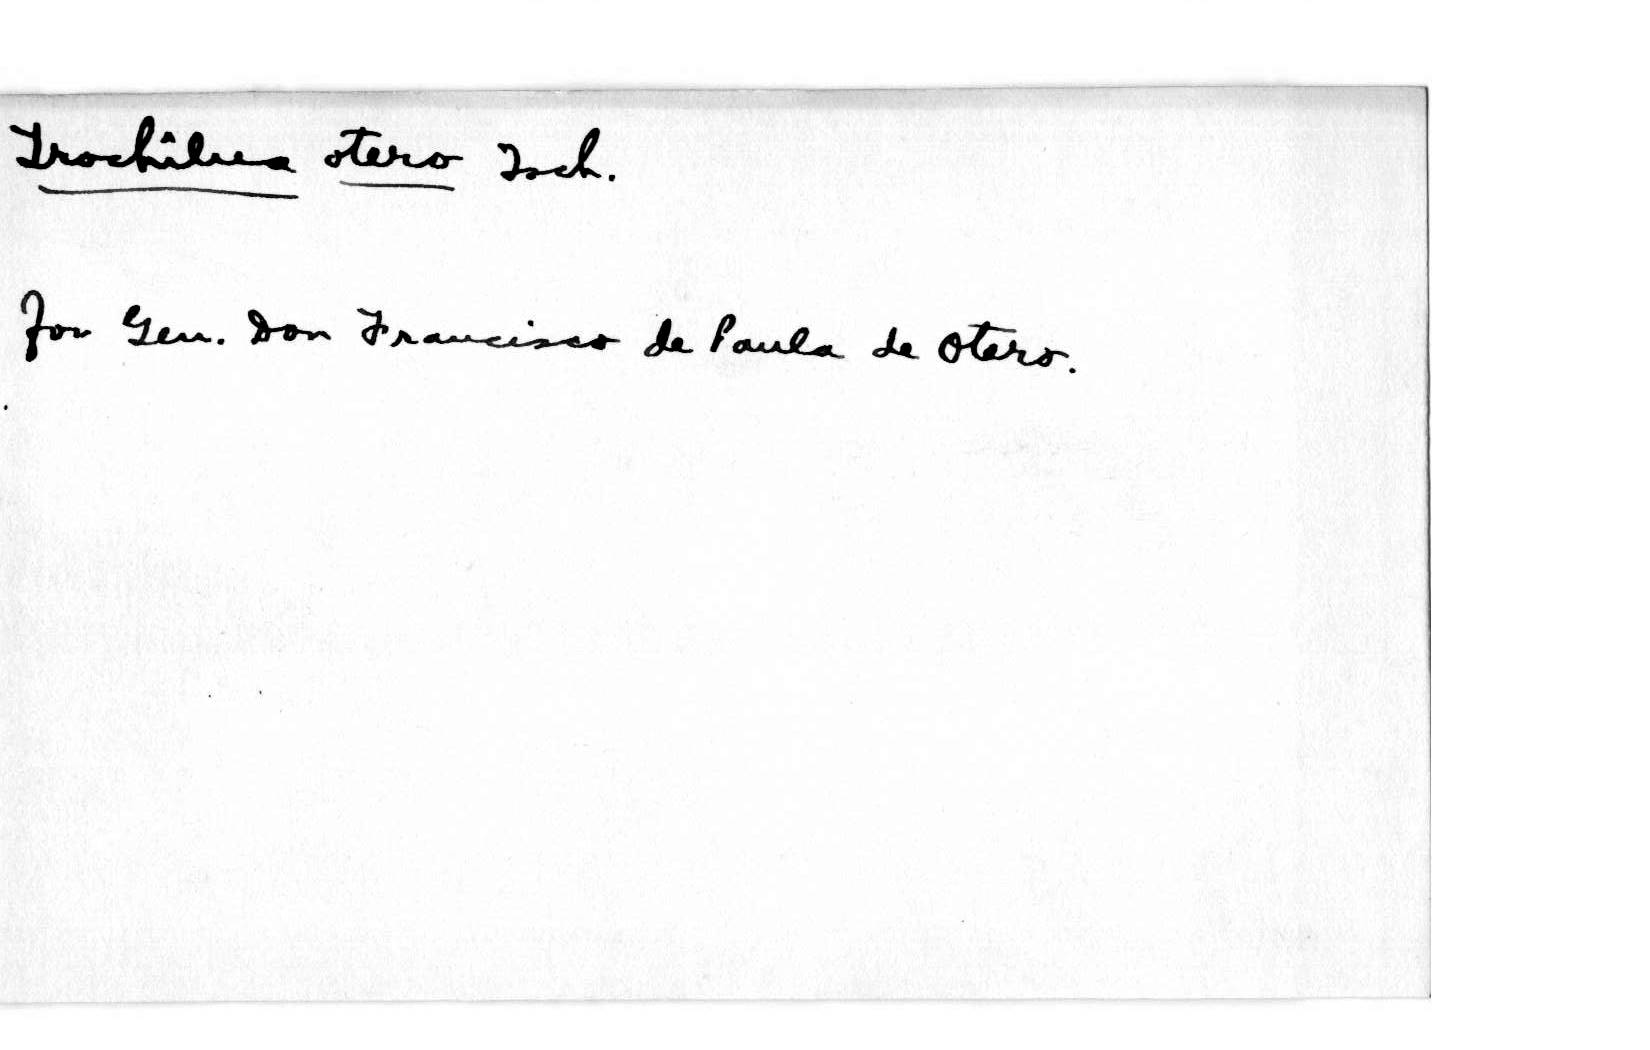 Trochilus otero Tsch.
for Gen. Don Francisco de Paula de Otero.